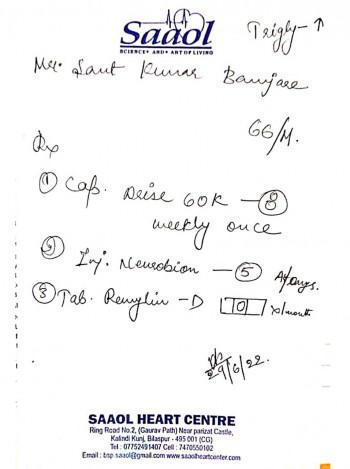 Saaol
SCIENCE AND ART OF LIVING
Trigly-↑
Mr. Sant Kumar Banjare
66/M.
Rx
① Cap. Deise 60K - ⑧
weekly once
② Inj. Neurobion - ⑤ A/Days.
③ Tab. Renylin - D [10] x/month
29/6/22.
SAAOL HEART CENTRE
Ring Road No.2, (Gaurav Path) Near parizat Castle,
Kalindi Kunj, Bilaspur - 495 001 (CG)
Tel : 07752491407 Cell : 7470550102
Email : bsp.saaol@gmail.com www.saaolheartcenter.com